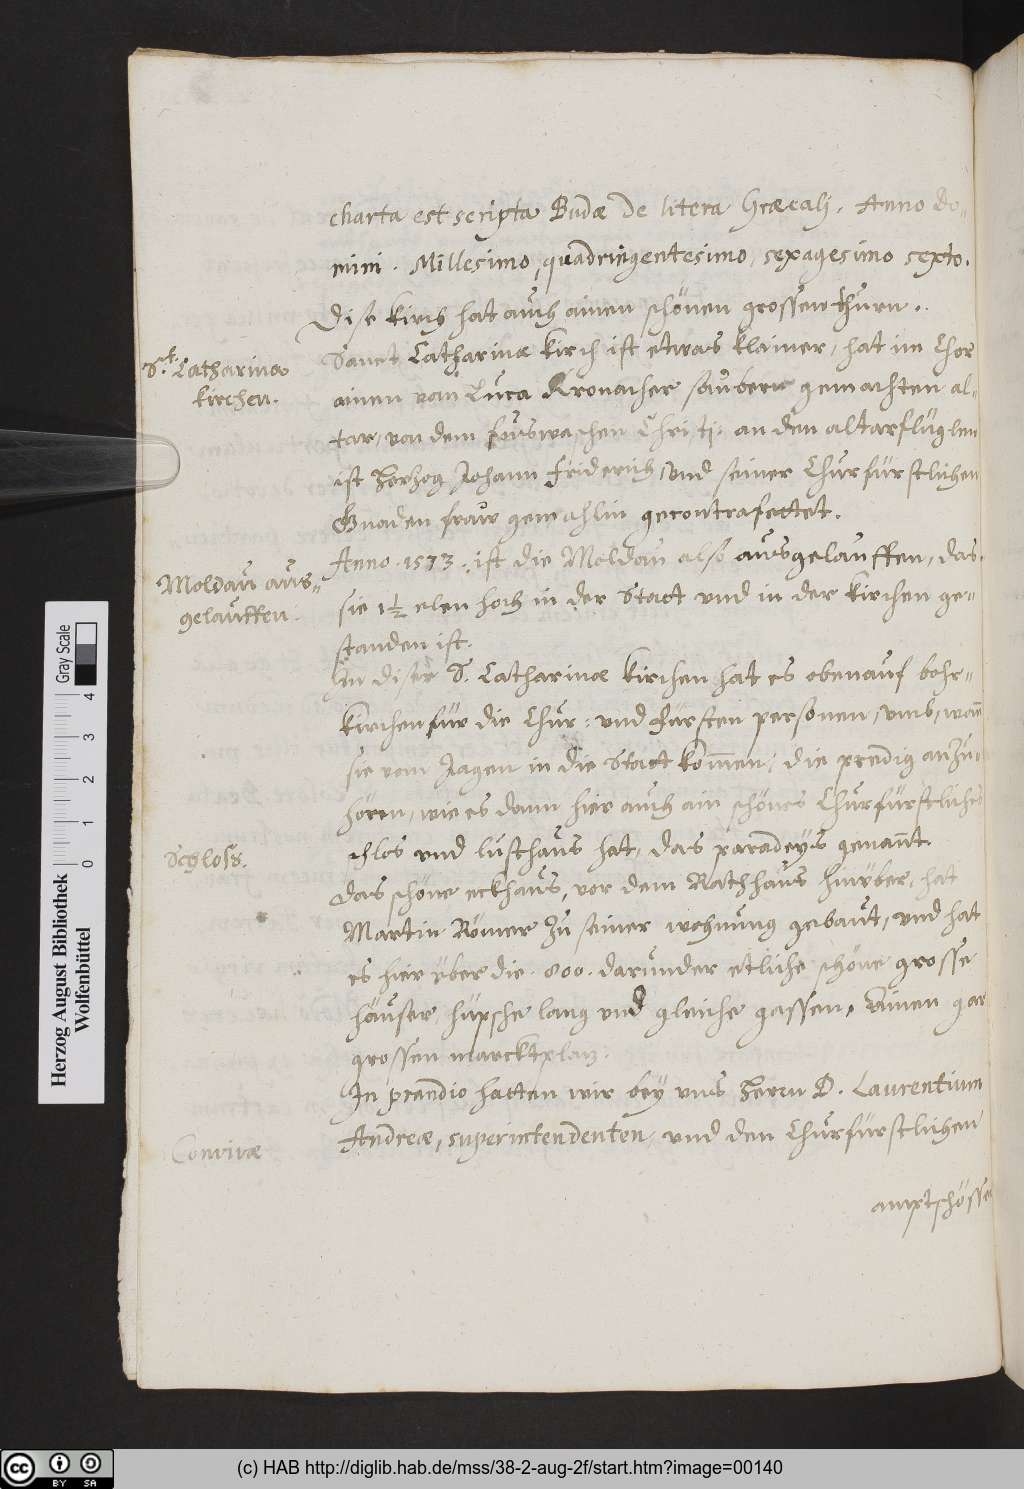 charta est scripta Budæ de litera Græcali. Anno Do-
mini. Millesimo, quadringentesimo, sexagesimo sexto.
Dise kirch hat auch ainen schönen grossen thurn.
S.t Catharinæ
kirchen.
Sanct Catharinæ kirch ist etwas klainer, hat im Chor
ainen von Luca Kronacher sauber gemachten al-
tar, von dem fuswaschen Christi. an den altarflüglen
ist Herzog Johann Friderich, und seiner Churfürstlichen
Gnaden fraw gemahlin gecontrafettet.
Moldau aus-
gelauffen.
Anno. 1573. ist die Moldau also ausgelauffen, das
sie 1½ elen hoch in der Statt und in der kirchen ge-
standen ist.
In diser S. Catharinæ kirchen hat es obenauf bohr-
kirchen für die Chur: und Fürsten personen, umb, wañ
sie vom Jagen in die Statt kom̃en, die predig anzu-
hören, wie es dann hier auch ain schönes Churfürstliches
Schloss.
schlos und lusthaus hat, das paradeys genañt.
Das schöne eckhaus, vor dem Rathhaus hinüber, hat
Martin Römer zu seiner wohnung gebaut, und hat
es hier über die. 800. darunder etliche schöne grosse
häuser, hüpsche lang und gleiche gassen, Ainen gar
grossen marcktplatz.
Convivæ
In prandio hatten wir bey uns Herrn D. Laurentium
Andreæ, superintendenten, und den Churfürstlichen
amptschösser
Gray Scale
0 1 2 3 4
Herzog August Bibliothek
Wolfenbüttel
cc BY SA
(c) HAB http://diglib.hab.de/mss/38-2-aug-2f/start.htm?image=00140